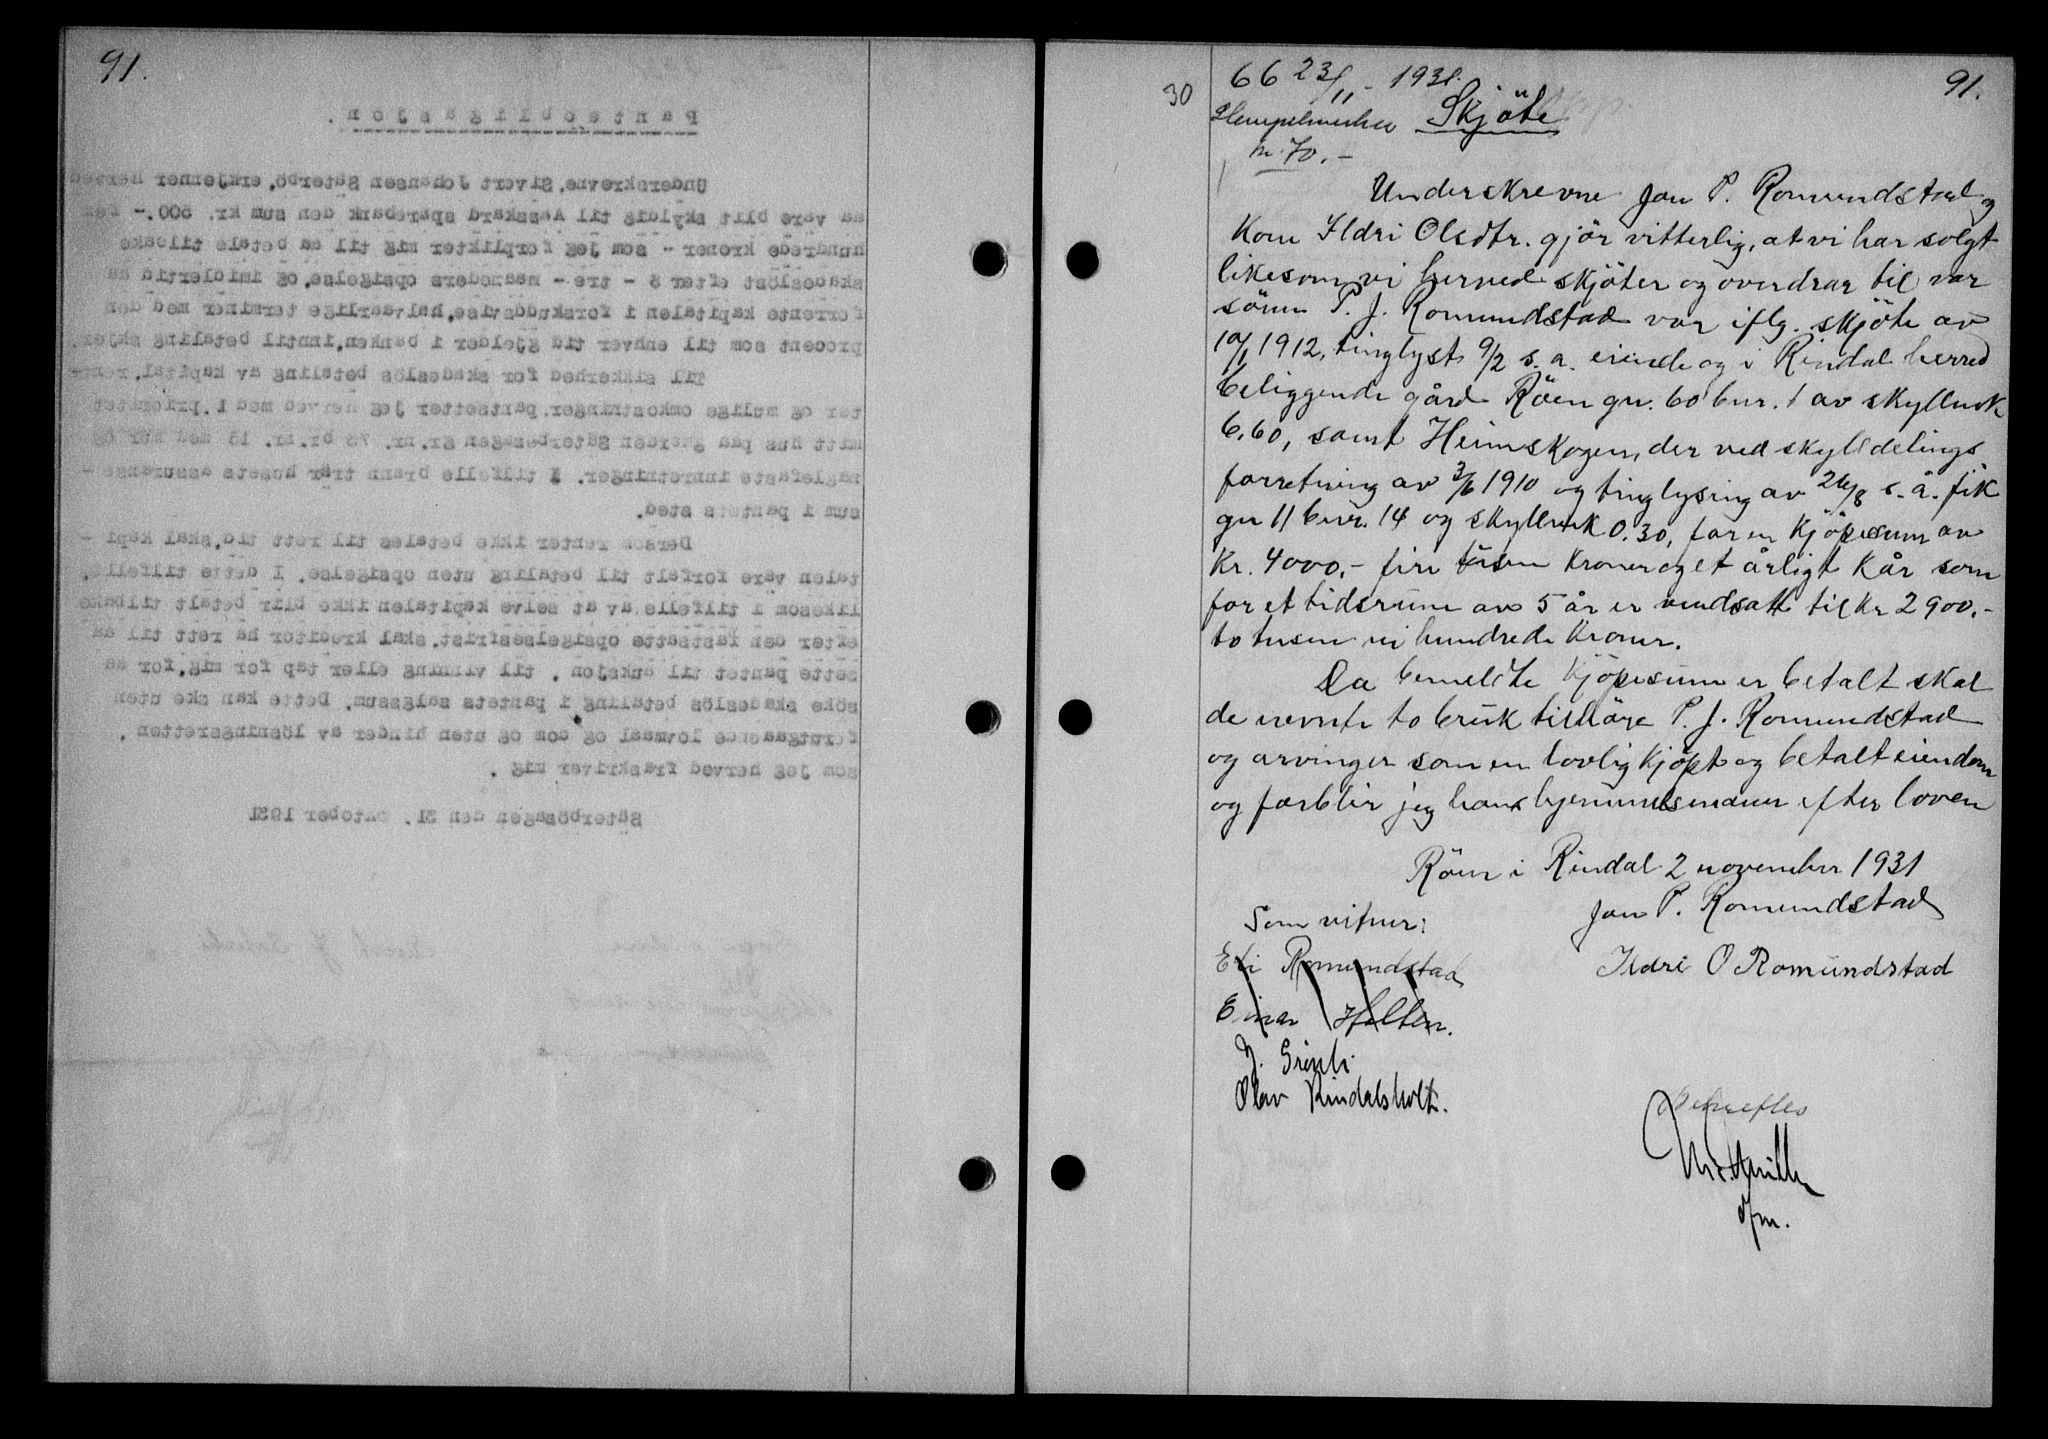 91.
Panteobligasjon.
Underskrevne, Sivert Johansen Säterbö, erkjenner herved
aa være blit skyldig til Aasskard sparebank den sum kr. 500.- fem
hundrede kroner - som jeg forplikter mig til aa betale tilbake
skadeslöst efter 3 - tre - maaneders opsigelse, og imidlertid aa
forrente kapitalen i forskuddsvise, halvaarlige terminer med den
procent som til enhver tid gjelder i banken, inntil betaling skjer.
Til sikkerhed for skadeslös betaling av kapital, ren-
ter og mulige omkostninger, pantsetter jeg herved med 1. prioritet
mitt hus paa gaarden Säterbösagen gr.nr. 78 br.nr. 15 med mur og
naglefaste innretninger. I tilfelle brann trär husets assuranse-
sum i pantets sted.
Dersom renter ikke betales til rett tid, skal kapi-
talen være forfalt til betaling uten opsigelse. I dette tilfelle,
likesom i tilfelle av at selve kapitalen ikke blir betalt tilbake
efter den fastsatte opsigelsesfrist, skal kreditor ha rett til aa
sette pantet til auksjon, til vinning eller tap for mig, for aa
söke skadeslös betaling i pantets salgssum. Dette kan ske uten
forutgaaende lovmaal og dom og uten hinder av lösningsretten,
som jeg herved fraskriver mig.
Säterbösagen den 31. oktober 1931
30
66 23/11 - 1931.
91.
Skjöte
Stempelmerker
kr. 70.-
Underskrevne Jon P. Romundstad og
Kone Ildri Olsdtr. gjör vitterlig, at vi har solgt
likesom vi herved skjöter og overdrar til vor
sönn P. J. Romundstad vor iflg. skjöte av
10/1 1912, tinglyst 9/2 s. a. eiende og i Rindal herred
beliggende gård Röen gn. 60 bnr. 1 av skyldmk
6,60, samt Heimskogen, der ved skylddelings
forretning av 3/6 1910 og tinglysing av 26/8 s. å. fik
gn 11 bnr. 14 og skyldmk 0.30, for en Kjöpesum av
Kr. 4000,- fire tusen kroner og et årligt Kår som
for et tidsrum av 5 år er verdsatt til Kr 2900.-
to tusen ni hundrede Kroner.
Da bemeldte Kjöpesum er betalt skal
de nevnte to bruk tilhöre P. J. Romundstad
og arvinger som en lovlig Kjöpt og betalt eiendom
og forblir jeg hans hjemmelsmann efter loven
Röen i Rindal 2 november 1931
Som vitner:
Jon P. Romundstad
Eli Romundstad
Ildri O Romundstad
Einar Helten.
Olav Rindalsholt.
Bekreftes